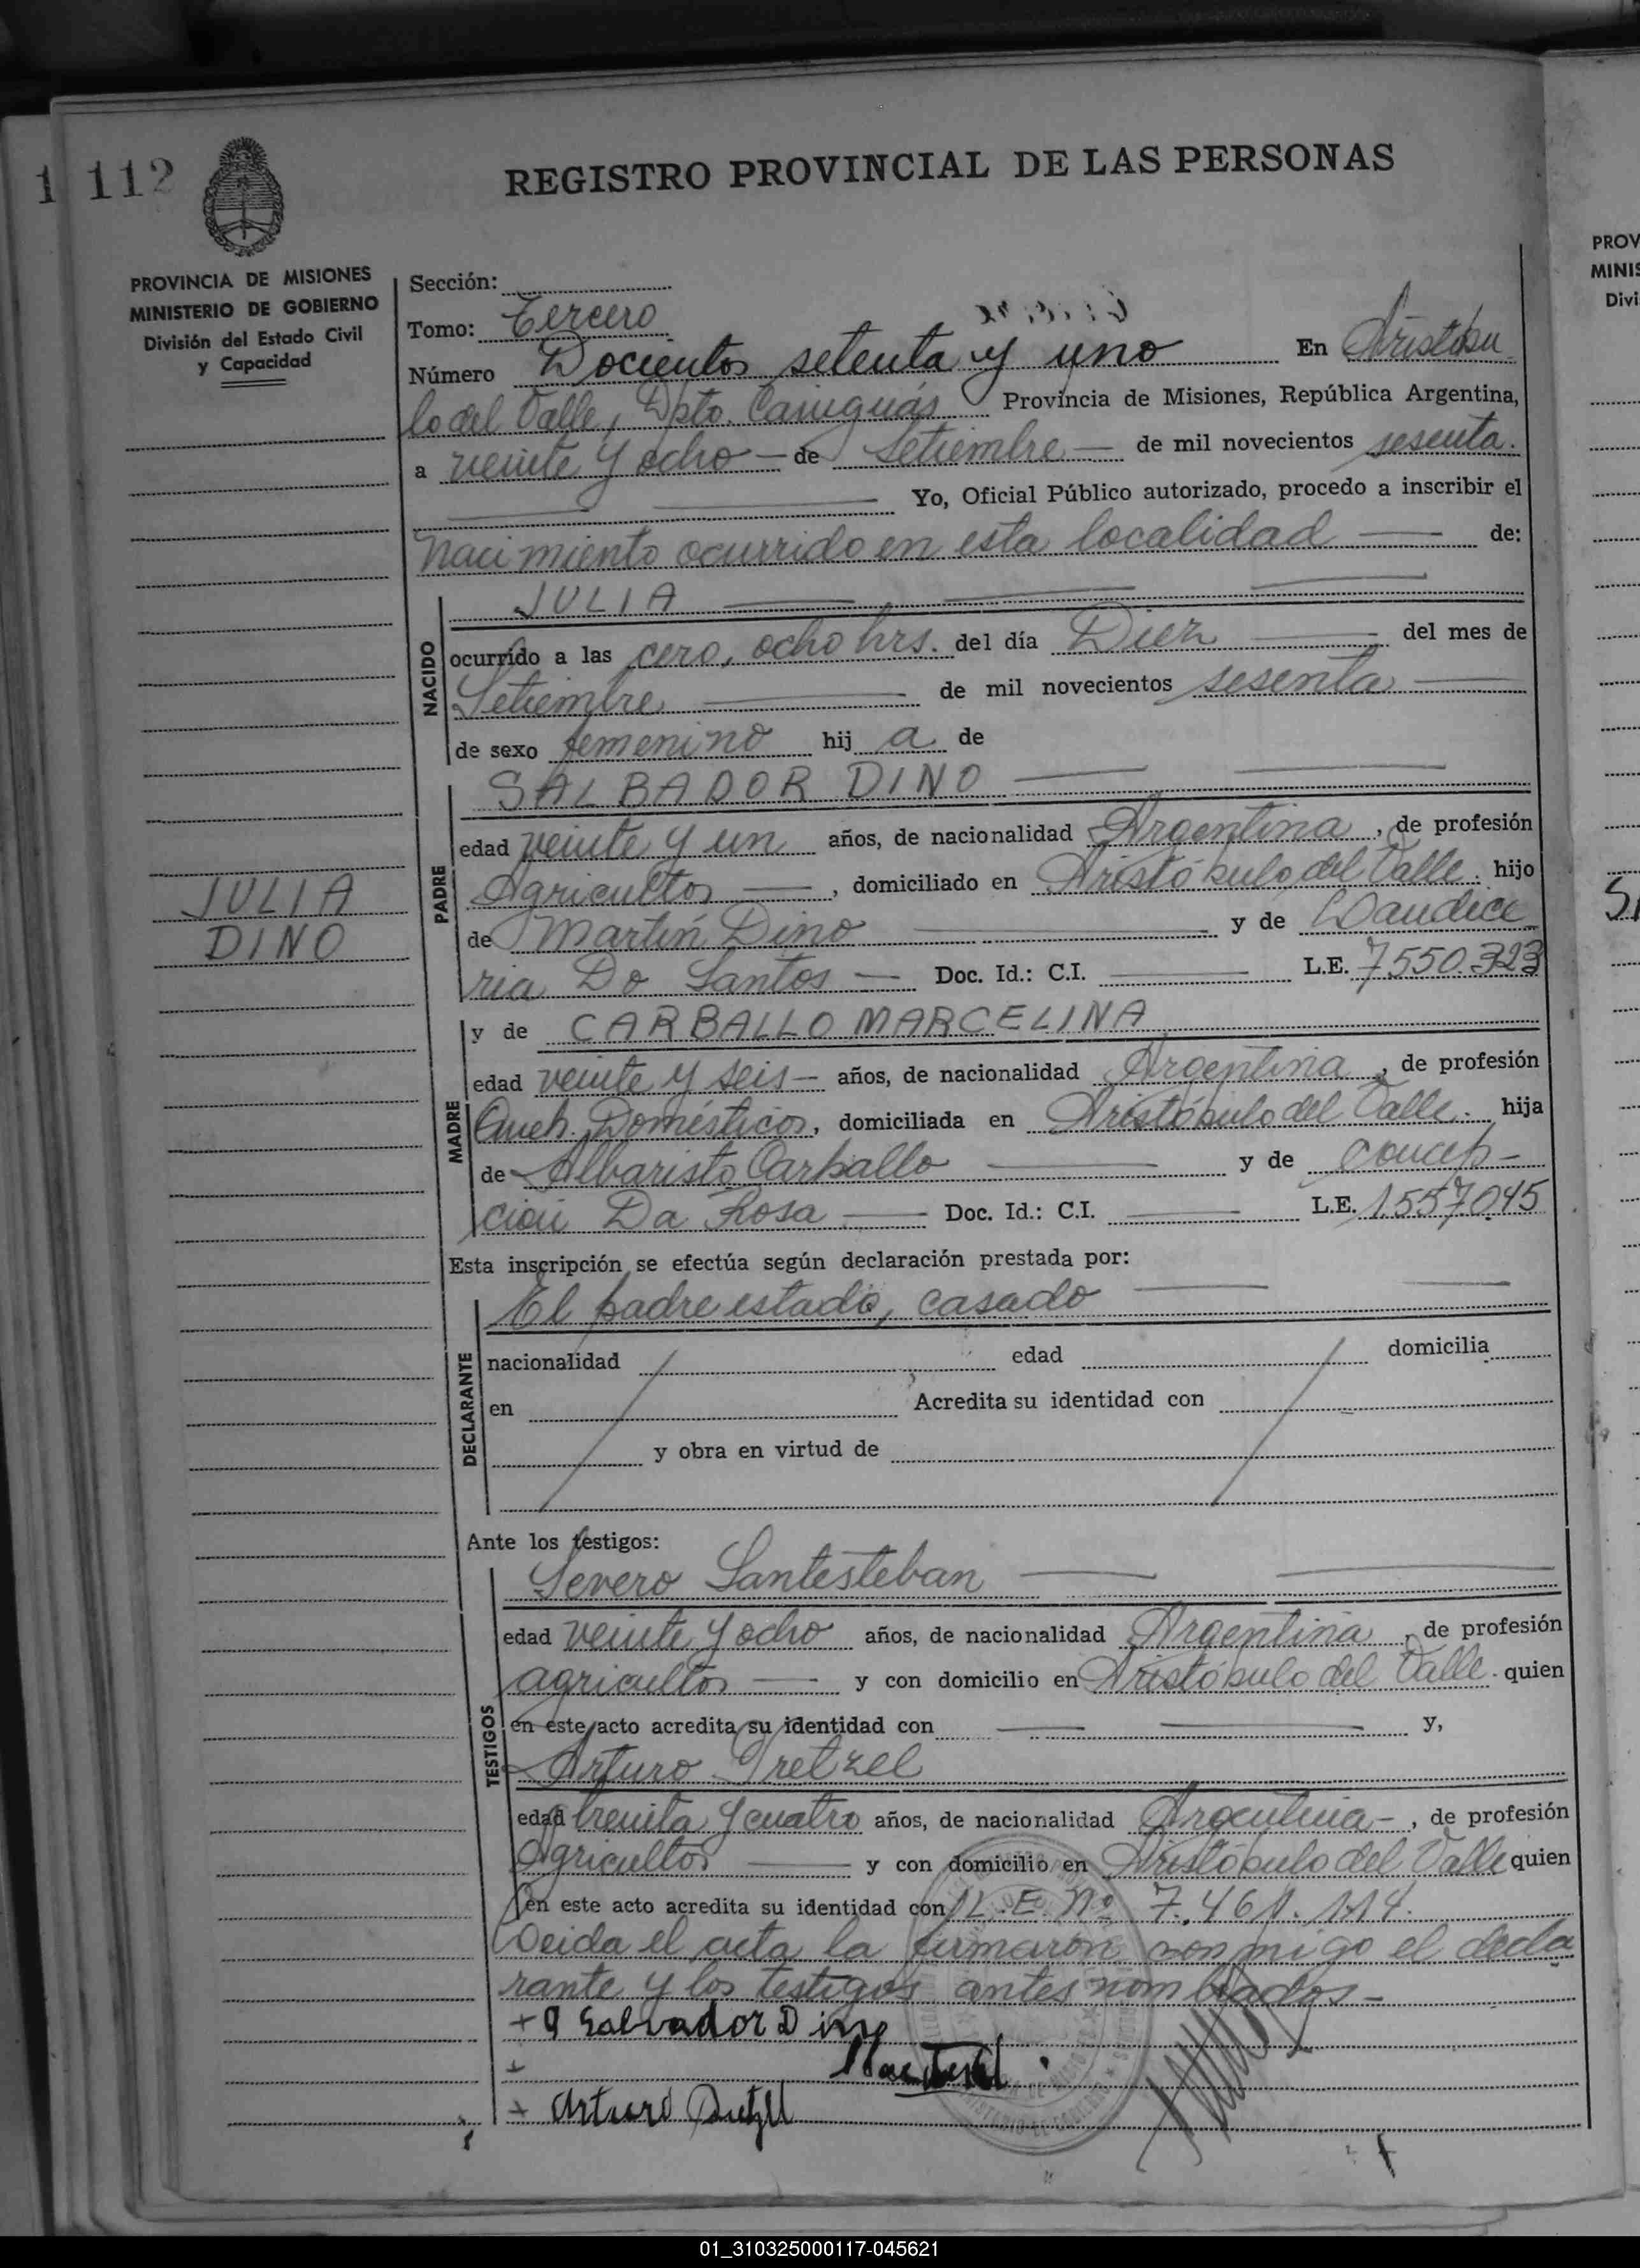 1 112
REGISTRO PROVINCIAL DE LAS PERSONAS
PROVINCIA DE MISIONES
MINISTERIO DE GOBIERNO
División del Estado Civil
y Capacidad
JULIA
DINO
Sección:
Tomo: Tercero
Número Docientos setenta y uno En Aristóbu
lo del Valle, Dpto. Cainguás Provincia de Misiones, República Argentina,
a veinte y ocho — de Setiembre — de mil novecientos sesenta.
Yo, Oficial Público autorizado, procedo a inscribir el
nacimiento ocurrido en esta localidad — de:
NACIDO
JULIA
ocurrido a las cero, ocho hrs. del día Diez del mes de
Setiembre de mil novecientos sesenta
de sexo femenino hij a de
PADRE
SALBADOR DINO
edad veinte y un años, de nacionalidad Argentina, de profesión
Agricultor —, domiciliado en Aristóbulo del Valle. hijo
de Martín Dino y de
ria Do Santos — Doc. Id.: C.I. L.E. 7550.323
MADRE
y de CARBALLO MARCELINA
edad veinte y seis — años, de nacionalidad Argentina, de profesión
Queh. Domésticos, domiciliada en Aristóbulo del Valle. hija
de Albaristo Carballo y de Concep-
ción Da Rosa — Doc. Id.: C.I. L.E. 1.557.045
Esta inscripción se efectúa según declaración prestada por:
DECLARANTE
El padre estado, casado
nacionalidad edad domicilia
en Acredita su identidad con
y obra en virtud de
Ante los testigos:
TESTIGOS
Severo Santesteban
edad veinte y ocho años, de nacionalidad Argentina, de profesión
agricultor — y con domicilio en Aristóbulo del Valle. quien
en este acto acredita su identidad con y,
Arturo
edad treinta y cuatro años, de nacionalidad Argentina —, de profesión
Agricultor — y con domicilio en Aristóbulo del Valle quien
en este acto acredita su identidad con L.E. Nº 7.461.114.
Leida el acta la firmaron conmigo el decla
rante y los testigos antes nombrados —
+ Salvador Dino
+
+ Arturo
PROV
MINIS
Divi
01_310325000117-045621